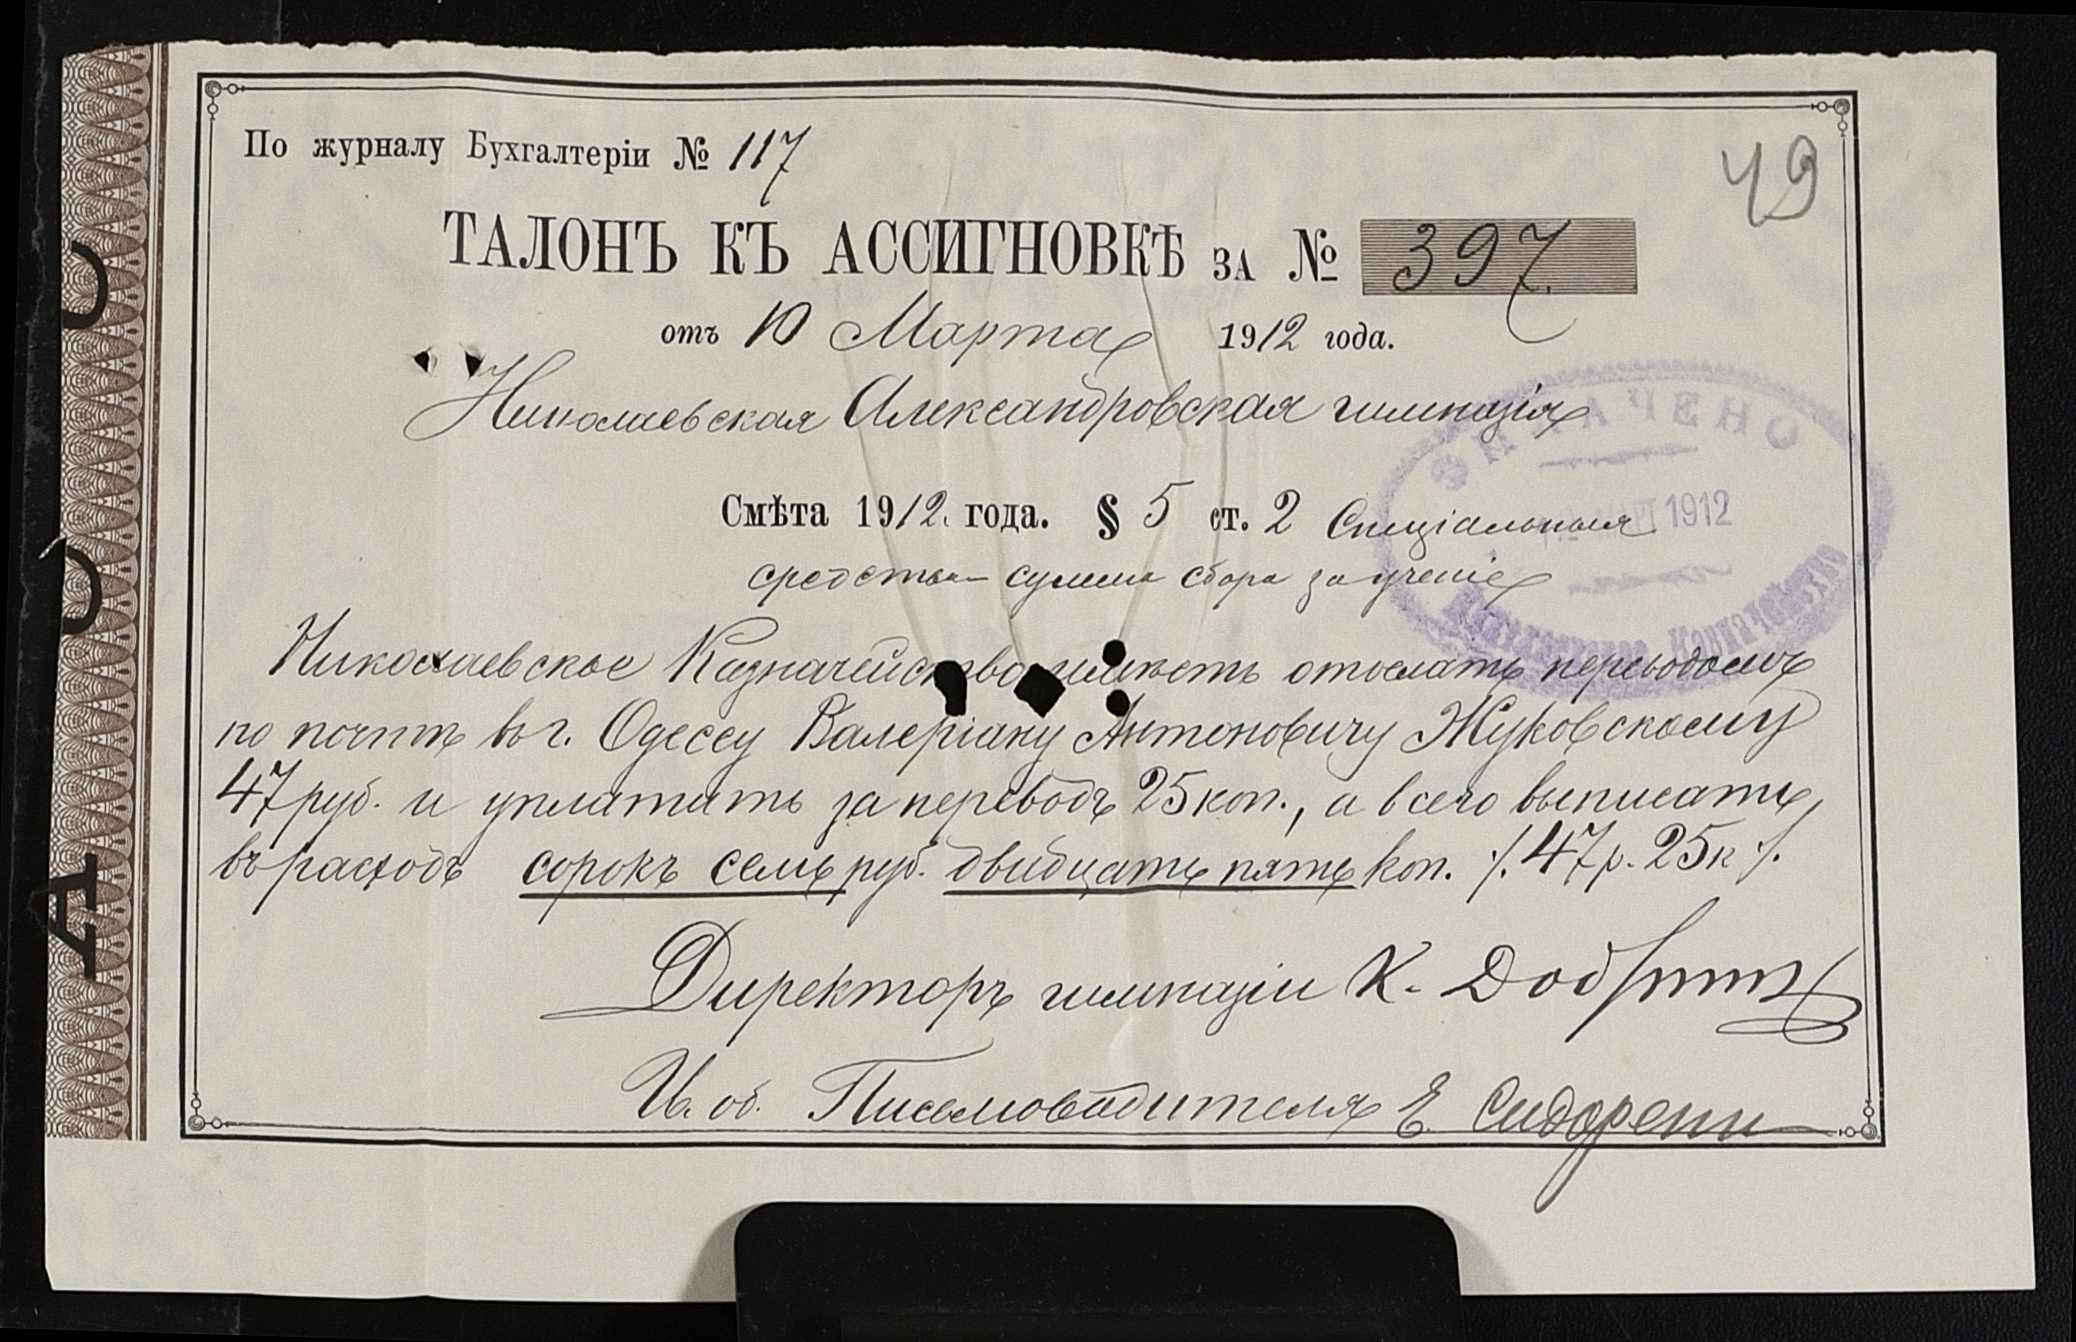 По журналу Бухгалтеріи № 117
49
ТАЛОНЪ КЪ АССИГНОВКѢ ЗА № 397.
отъ 10 Марта 1912 года.
Николаевская Александровская гимназія
Смѣта 1912 года. § 5 ст. 2 Спеціальныя
средства сумма сбора за ученіе
Николаевское Казначейство имѣетъ отослать переводомъ
по почтѣ въ г. Одессу Валеріану Антоновичу Жуковскому
47 руб. и уплатить за переводъ 25 коп., а всего выписать
въ расходъ сорокъ семь руб. двадцать пять коп. ./. 47 р. 25 к ./.
Директоръ гимназіи К.
И. об. Письмоводителя Е. Сидоренко
1912
Казначейство
А С С